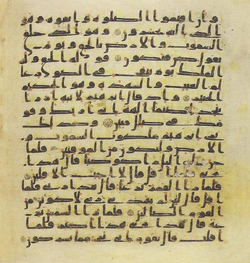 و ان اقيموا الصلوه و اتقوه و هو
الذي اليه تحشرون و هو الذي خلق
السموت و الارض بالحق و يوم
يقول كن فيكون قوله الحق و له
الملك يوم ينفخ في الصور
علم الغيب و الشهده و هو الحكيم
الخبير و اذ قال ابرهيم لابيه ازر ا
تتخذ اصناما الهه اني اريك و قو
مك في ضلل مبين و كذلك نري
ابرهيم ملكوت السموت و الا
رض و ليكون من الموقنين فلما
جن عليه اليل را كوكبا قال هذا
ربي فلما افل قال لا احب الافلين
فلما را القمر بازغا قال هذا ربي فلما
افل قال لئن لم يهدني ربي لاكونن من
القوم الضالين فلما را الشمس با
زغه قال هذا ربي هذا اكبر فلما
افلت قال يقوم اني بري مما تشركون